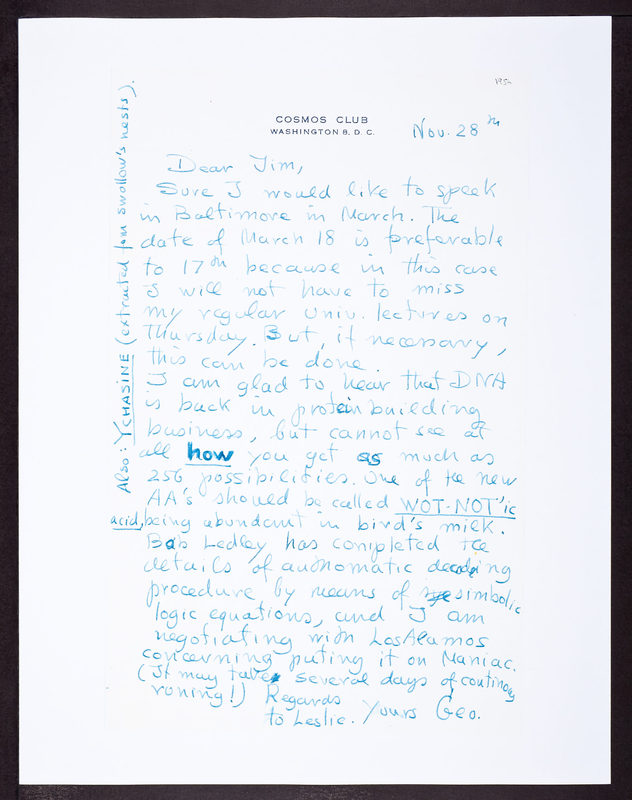 195
COSMOS CLUB
WASHINGTON 8, D. C.
Nov. 28th
Dear Jim,
Sure I would like to speek
in Baltimore in March. The
date of March 18 is preferable
to 17th because in this case
I will not have to miss
my regular Univ. lectures on
Thursday. But, if necessary,
this can be done.
I am glad to hear that DNA
is back in protein building
business, but cannot see at
all how you get as much as
256 possibilities. One of the new
AA's should be called WOT-NOT'ic
acid, being abundant in bird's milk.
Bob Ledley has completed the
details of authomatic decoding
procedure by means of simbolic
logic equations, and I am
negotiating with Los Alamos
concerning puting it on Maniac.
(It may take several days of continous
runing!) Regards
to Leslie. Yours Geo.
Also: YCHASINE (extracted from swallow's nests).